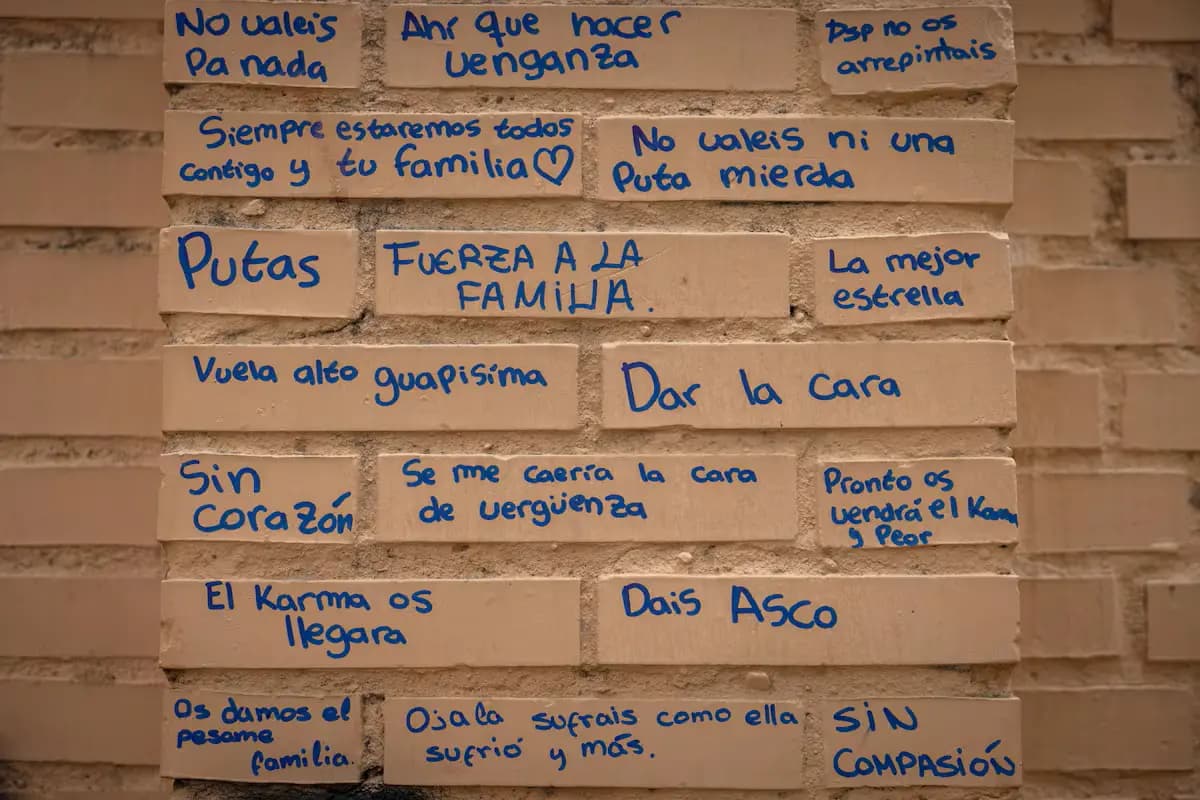 No valeis
Pa nada
Ahr que hacer
venganza
Dsp no os
arrepintais
Siempre estaremos todos
contigo y tu familia♡
No valeis ni una
Puta mierda
Putas
FUERZA A LA
FAMILIA.
La mejor
estrella
Vuela alto guapisima
Dar la cara
Sin
corazón
Se me caería la cara
de vergüenza
Pronto os
vendrá el Karma
y Peor
El Karma os
llegara
Dais Asco
Os damos el
pesame
familia.
Ojala sufrais como ella
sufrió y más.
SIN
COMPASIÓN